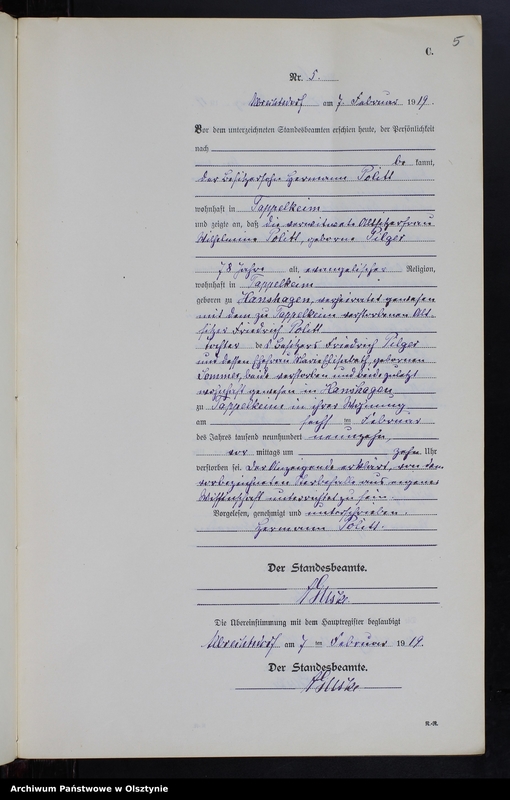 5
C.
Nr. 5.
Albrechtsdorf am 7. Februar 1919.
Vor dem unterzeichneten Standesbeamten erschien heute, der Persönlichkeit
nach
be kannt,
der Besitzersohn Hermann Politt
wohnhaft in Tappelkeim
und zeigte an, daß die verwitwete Altsitzerfrau
Wilhelmine Politt, geborene Pilger
78 Jahre alt, evangelischer Religion,
wohnhaft in Tappelkeim
geboren zu Hanshagen, verheiratet gewesen
mit dem zu Tappelkeim verstorbenen Alt-
sitzer Friedrich Politt
Tochter des Besitzers Friedrich Pilger
und dessen Ehefrau geborenen
Sommer, beide verstorben und beide zuletzt
wohnhaft gewesen in Hanshagen
zu Tappelkeim in ihrer Wohnung
am sechs ten Februar
des Jahres tausend neunhundert neunzehn,
vor mittags um zehn Uhr
verstorben sei. Der Anzeigende erklärt, von dem
vorbezeichneten Sterbefalle aus eigener
Wissenschaft unterrichtet zu sein.
Vorgelesen, genehmigt und unterschrieben.
Hermann Politt.
Der Standesbeamte.
Die Übereinstimmung mit dem Hauptregister beglaubigt
Albrechtsdorf am 7 ten Februar 1919.
Der Standesbeamte.
R.-R.
Archiwum Państwowe w Olsztynie